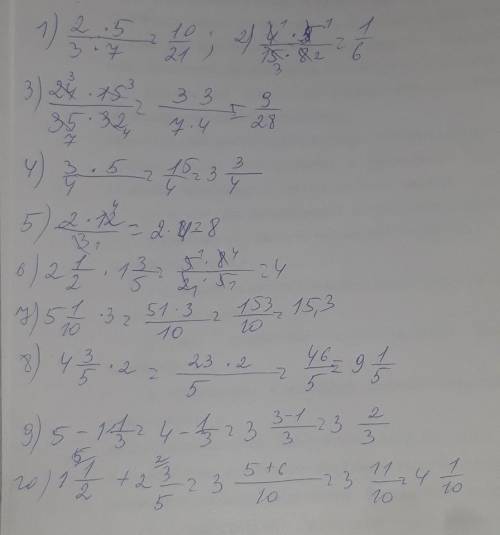 1) 2 · 5 / 3 · 7 = 10/21 ; 2) 4¹ · 5¹ / 15₃ · 8₂ = 1/6
3) 24³ · 15³ / 35₇ · 32₄ = 3 3 / 7 · 4 = 9/28
4) 3/4 · 5 = 15/4 = 3 3/4
5) 2 · 12⁴ / 3₁ = 2 · 4 = 8
6) 2 1/2 · 1 3/5 = 5¹ · 8⁴ / 2₁ · 5₁ = 4
7) 5 1/10 · 3 = 51 · 3 / 10 = 153/10 = 15,3
8) 4 3/5 · 2 = 23 · 2 / 5 = 46/5 = 9 1/5
9) 5 - 1 1/3 = 4 - 1/3 = 3 3-1/3 = 3 2/3
10) 1 1/2 ⁵ + 2 3/5 ² = 3 5+6/10 = 3 11/10 = 4 1/10